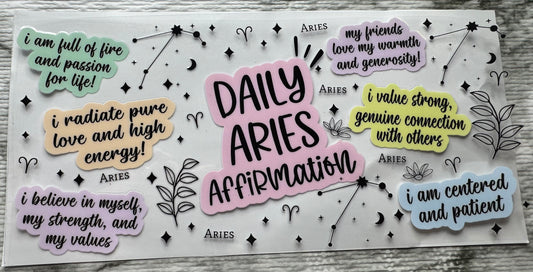 i am full of fire
and passion
for life!
ARIES
my friends
love my warmth
and generosity!
DAILY
ARIES
AFFIRMATION
ARIES
i radiate pure
love and high
energy!
i value strong,
genuine connection
with others
ARIES
ARIES
i believe in myself,
my strength, and
my values
ARIES
i am centered
and patient